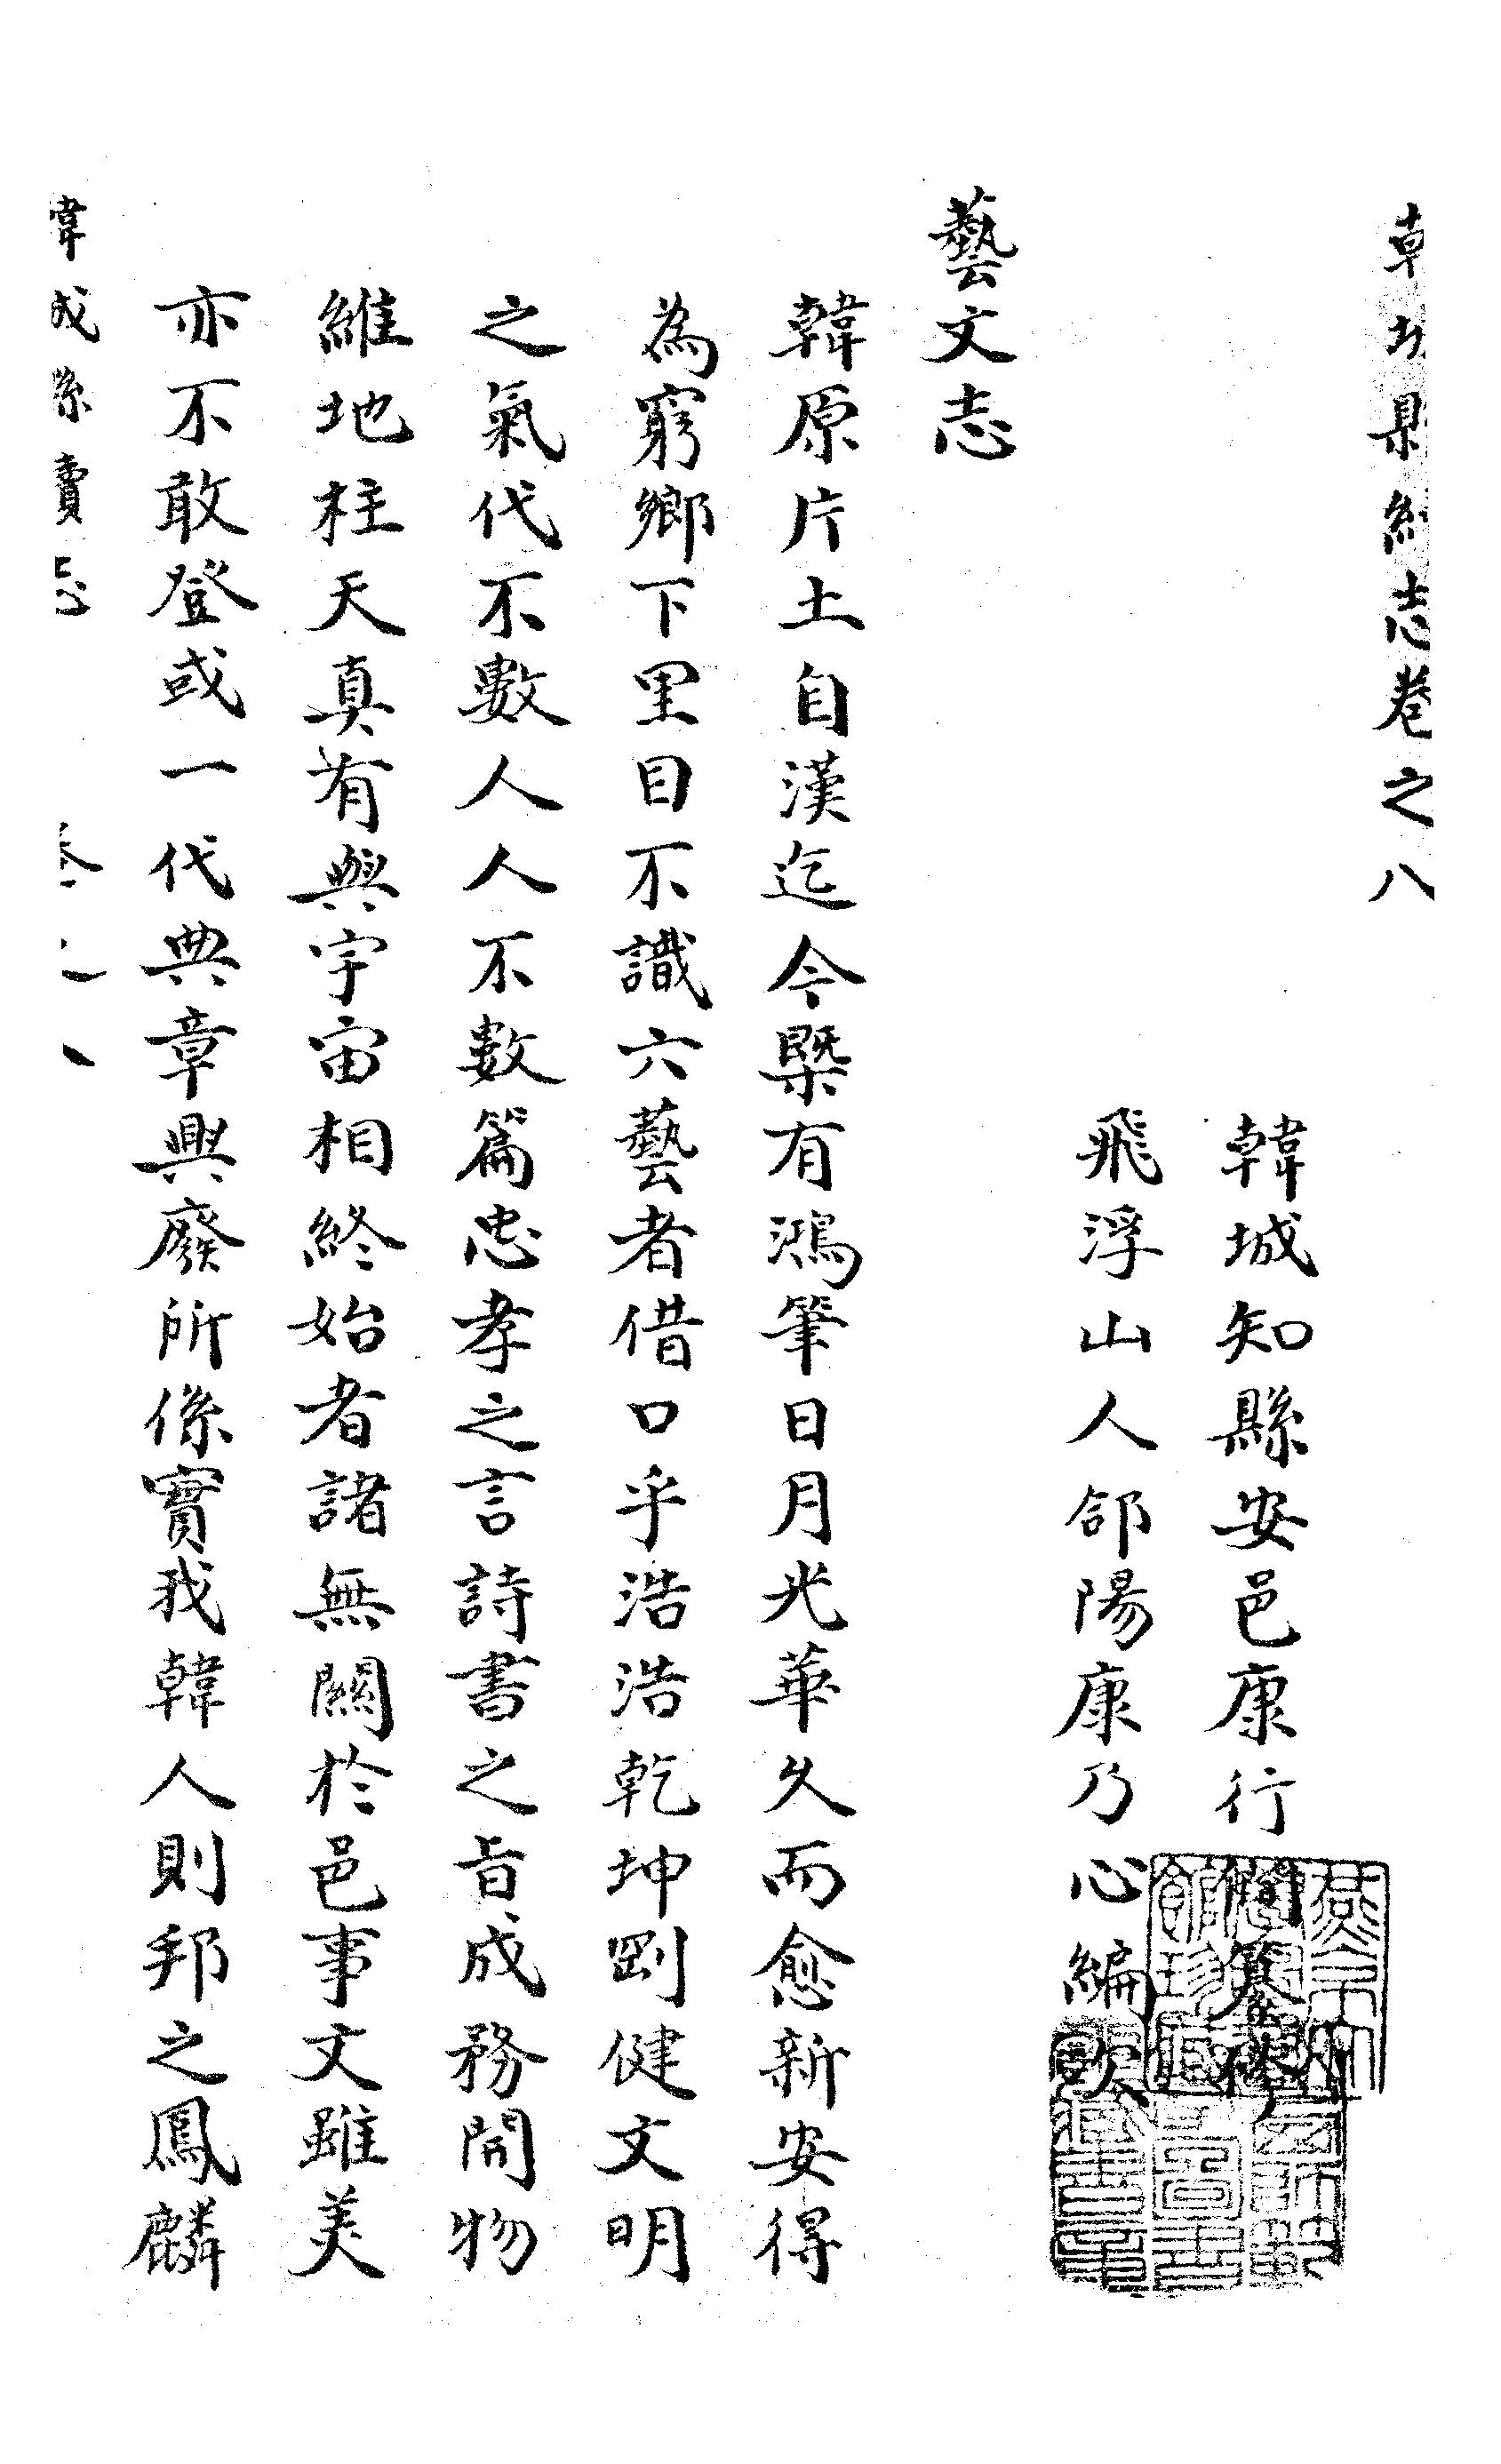 韓城縣續志卷之八
韓城知縣安邑康行僩纂修
飛浮山人郃陽康乃心編次
藝文志
韓原片土自漢迄今槩有鴻筆日月光華久而愈新安得
為窮鄉下里目不識六藝者借口乎浩浩乾坤剛健文明
之氣代不數人人不數篇忠孝之言詩書之旨成務開物
維地柱天真有與宇宙相終始者諸無關於邑事文雖美
亦不敢登或一代典章興廢所係實我韓人則邦之鳳麟
韓城縣續志 卷之八